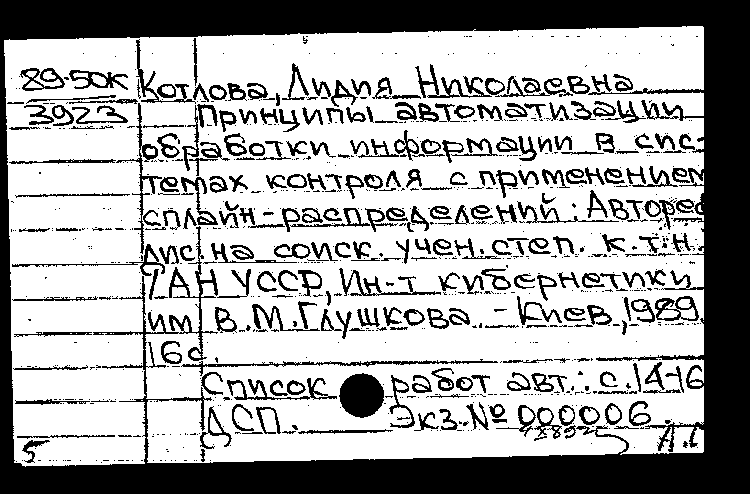 89-50К Котлова, Лидия Николаевна.
3923 Принципы автоматизации
обработки информации в сис-
темах контроля с применением
сплайн-распределений: Авторес
дис. на соиск. учен. степ. к.т.н.
/АН УССР, Ин-т кибернетики
им В.М.Глушкова. - Киев, 1989.
16с.
Список работ авт.: с.14-16
ДСП. Экз.№ 000006.
5 А.С